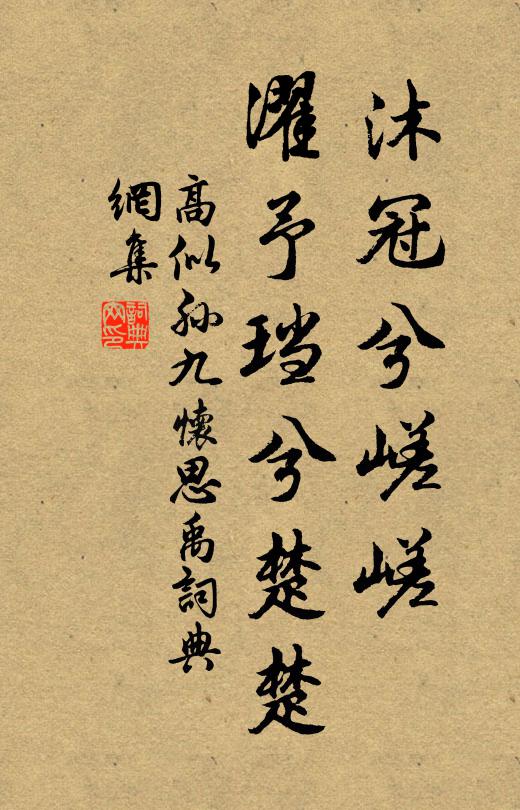 沐冠兮嵯嵯
濯予珰兮楚楚
高似孙九懷思禹詞典
網集
詞典網印